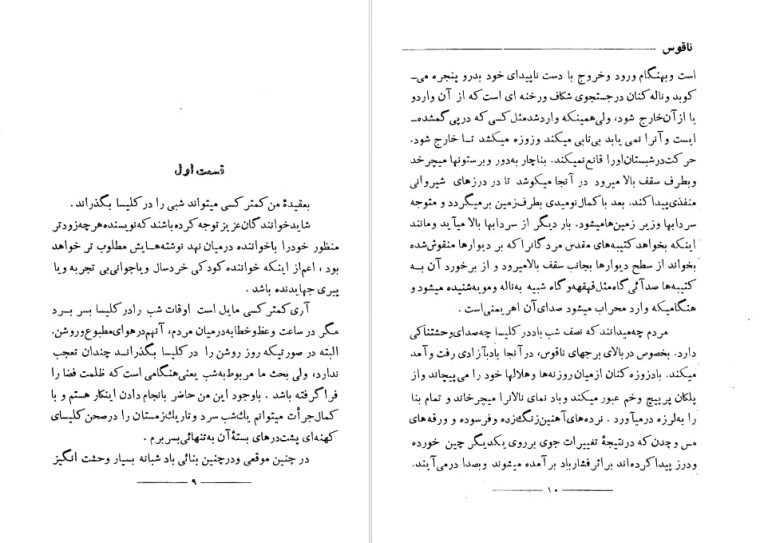 قسمت اول
بعقیدهٔ من کمتر کسی میتواند شبی را در کلیسا بگذراند.
شاید خوانندگان عزیز توجه کرده باشند که نویسنده هرچه زودتر
منظور خود را با خواننده درمیان نهد نوشته‌هایش مطلوب تر خواهد
بود ، اعم از اینکه خواننده کودکی خرد سال ویاجوانی بی تجربه ویا
پیری جهاندیده باشد .
آری کمتر کسی مایل است اوقات شب را در کلیسا بسر برد
مگر در ساعت وعظ وخطابه درمیان مردم، آنهم در هوای مطبوع وروشن.
البته در صورتیکه روز روشن را در کلیسا بگذراند چندان تعجب
ندارد، ولی بحث ما مربوط به شب یعنی هنگامی است که ظلمت فضا را
فرا گرفته باشد . باوجود این من حاضر بانجام دادن اینکار هستم و با
کمال جرأت میتوانم یك شب سرد و تاریك زمستان را در صحن کلیسای
کهنه‌ای پشت درهای بستهٔ آن به تنهائی بسر برم .
در چنین موقعی ودرچنین بنائی باد شبانه بسیار وحشت انگیز
۹
ناقوس
است وبهنگام ورود وخروج با دست ناپیدای خود بدرو پنجره می‌ـ
کوبد و ناله کنان در جستجوی شکاف ورخنه ای است که از آن وارد و
یا از آن خارج شود، ولی همینکه وارد شد مثل کسی که در پی گمشده‌ـ
ایست و آنرا نمی یابد بی‌تابی میکند وزوزه میکشد تا خارج شود.
حرکت در شبستان او را قانع نمیکند. بناچار به‌دور و بر ستونها میچرخد
وبطرف سقف بالا میرود در آنجا میکوشد تا در درزهای شیروانی
منفذی پیدا کند. بعد با کمال نومیدی بطرف زمین بر میگردد و متوجه
سردابها وزیر زمین‌ها میشود. بار دیگر از سردابها بالا میآید ومانند
اینکه بخواهد کتیبه‌های مقدس مردگانرا که بر دیوارها منقوش شده
بخواند از سطح دیوارها بجانب سقف بالا میرود و از برخورد آن به
کتیبه‌ها صدائی گاه مثل قهقهه و گاه شبیه به ناله و مویه شنیده میشود و
هنگامیکه وارد محراب میشود صدای آن اهریمنی است .
مردم چه میدانند که نصف شب باد در کلیسا چه صدای وحشتناکی
دارد. بخصوص در بالای برجهای ناقوس، در آنجا باد بآزادی رفت و آمد
میکند. باد زوزه کنان از میان روزنه‌ها وهلالها خود را می‌پیچاند و از
پلکان پر پیچ و خم عبور میکند وباد نمای نالانرا میچرخاند و تمام بنا
را به لرزه درمیآورد . نرده‌های آهنین زنگ زده و فرسوده و ورقه‌های
مس و چدن که درنتیجهٔ تغییرات جوی بر روی یکدیگر چین خورده
ودرز پیدا کرده‌اند بر اثر فشار باد بر آمده میشوند و بصدا در می‌آیند.
۱۰